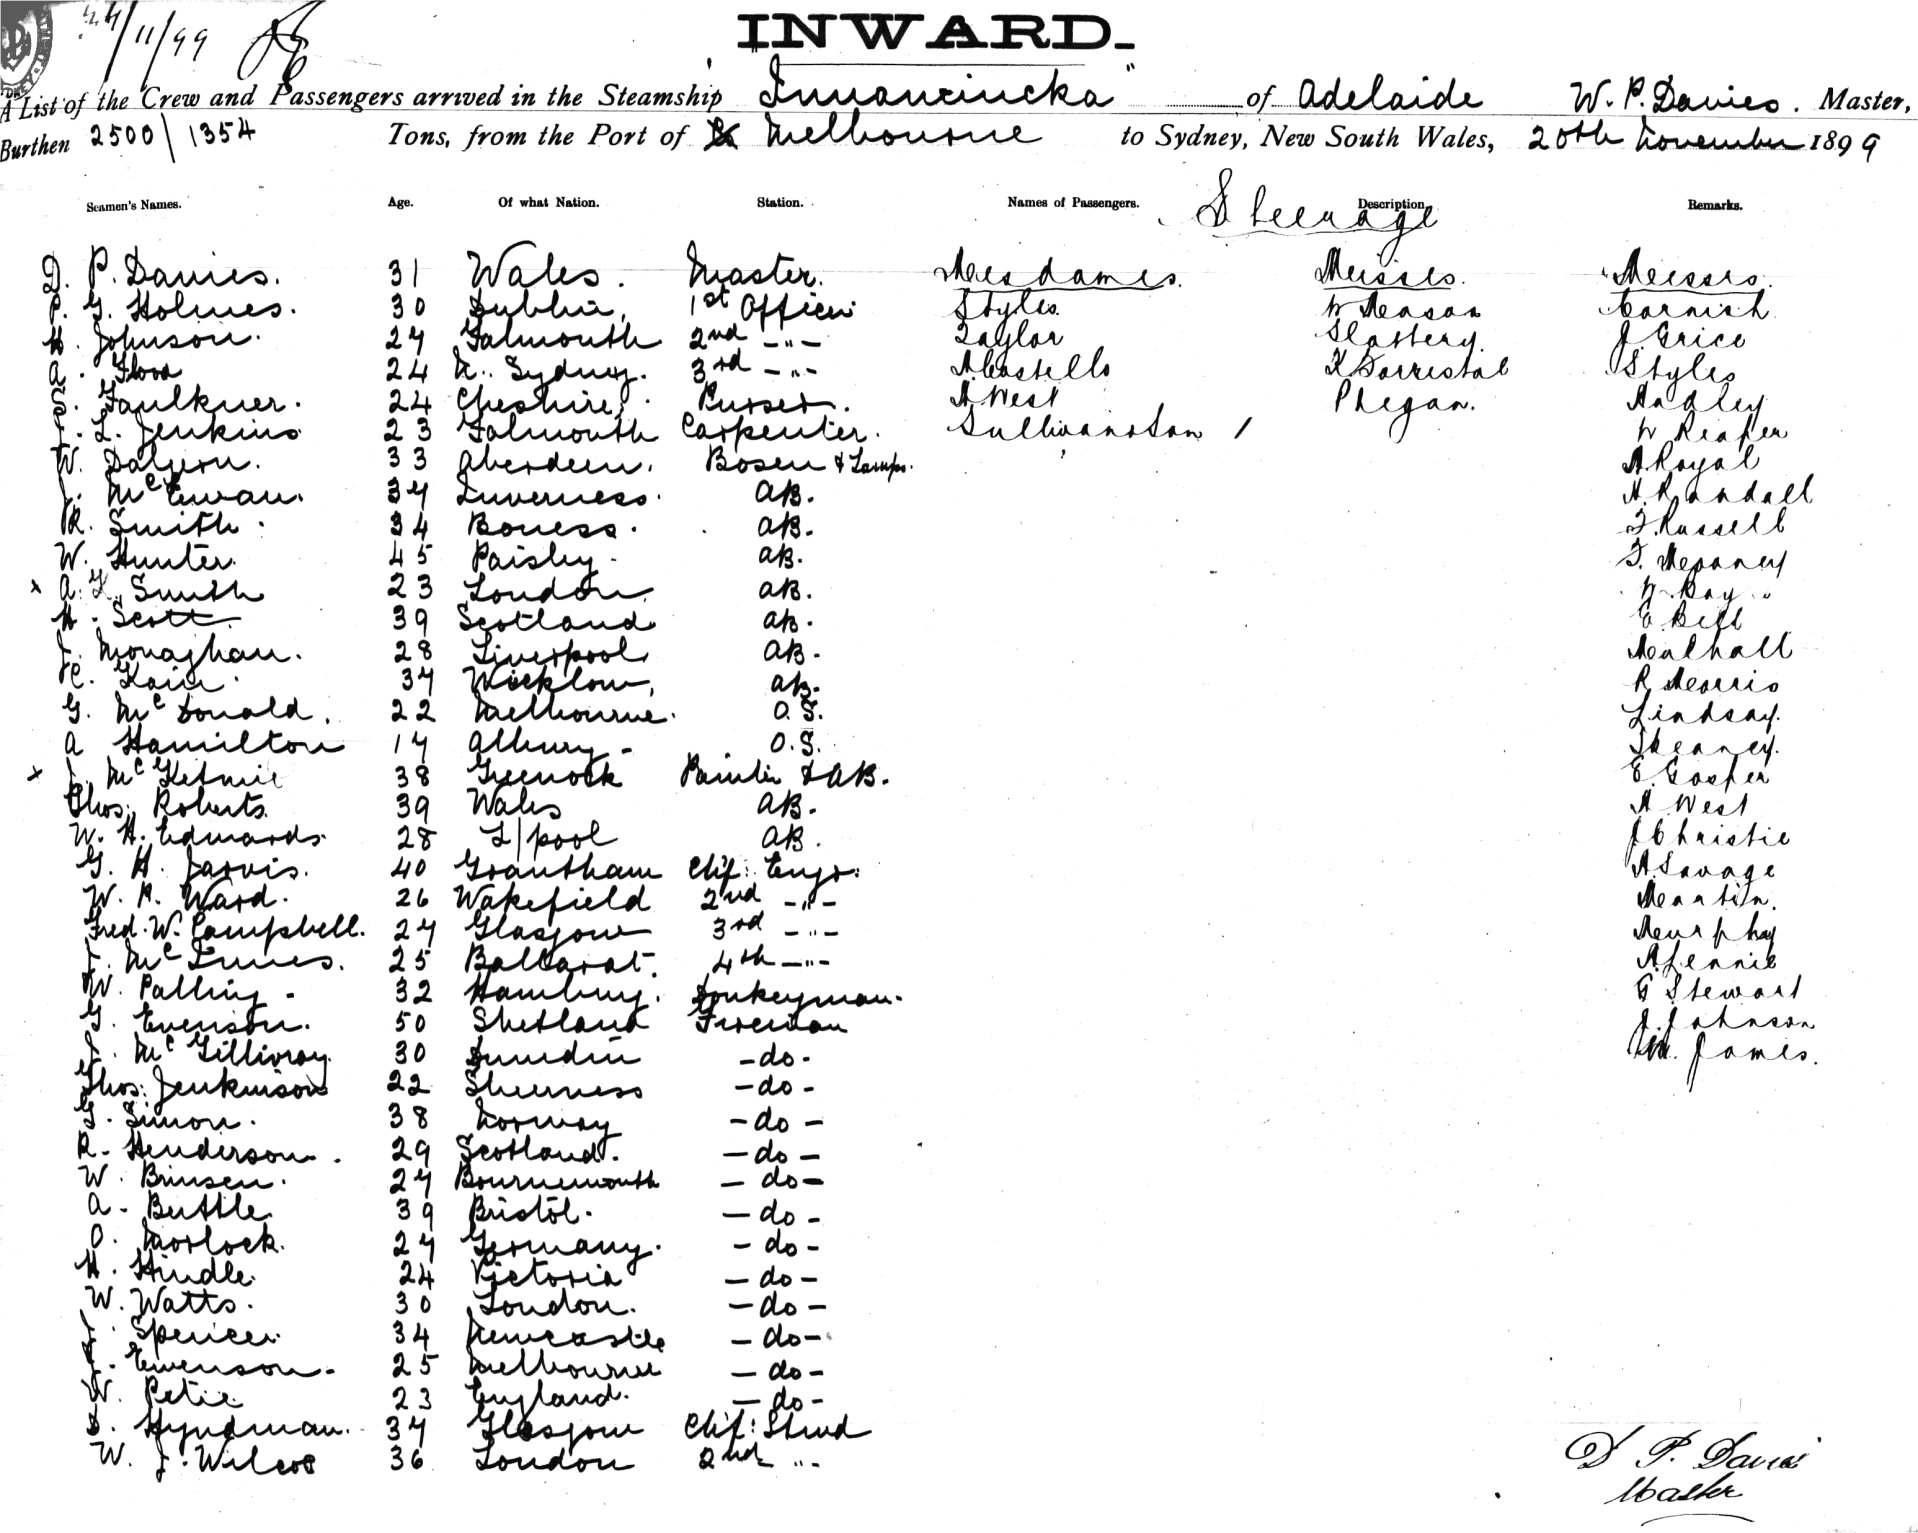 24/11/99
INWARD.
A List of the Crew and Passengers arrived in the Steamship "Innamincka" of Adelaide W. P. Davies. Master,
Burthen 2500/1354 Tons, from the Port of Melbourne to Sydney, New South Wales, 20th November 1899
Seamen's Names. Age. Of what Nation. Station. Names of Passengers. Description. Remarks.
Steerage
D. P. Davies. 31 Wales. Master. Mesdames. Misses. Messrs.
P. G. Holmes. 30 Dublin. 1st Officer Styles W Meason Cornish
H. Johnson. 27 Falmouth 2nd -"- Taylor Slattery. J Grice
A. Flood 24 N. Sydney. 3rd -"- A Costello K Forrestal Styles
S. Faulkner. 24 Cheshire. Purser. A West Phegan. Hadley
T. L. Jenkins 23 Falmouth Carpenter. Sullivan & Son 1 W Reaper
W. Dalgern. 33 Aberdeen. Bosen & Lamps. A Royal
J. McEwan. 37 Inverness. AB. H Randall
R. Smith. 34 Boness. AB. F. Russell
W. Hunter. 45 Paisley. AB. T. Meporney
x A. K. Smith 23 London. AB. W Day
H. Scott 39 Scotland. AB. E Bell
J. Monaghan. 28 Liverpool. AB. Mulhall
C. Kain. 37 Wicklow. AB. R Morris
G. McDonald. 22 Melbourne. O.S. Lindsay.
A Hamilton 17 Albury - O.S. Skeaney.
x J. McKelmie 38 Greenock Painter & AB. E Gosper
Thos. Roberts. 39 Wales AB. A West
W. H. Edwards. 28 L/pool AB. J Christie
G. H. Jarvis. 40 Grantham Chf: Engr: A Savage
W. R. Ward. 26 Wakefield 2nd -"- Martin.
Fred. W. Campbell. 27 Glasgow 3rd -"- Murphy
J. McInnes. 25 Ballarat. 4th -"- A Lennie
W. Palling - 32 Hamburg. Donkeyman. G Stewart
G. Evenson. 50 Shetland Fireman J. Johnson
J. McGillivray. 30 Dunedin -do- Wm. James.
Thos: Jenkinson 22 Sheerness -do-
G. Simon. 38 Norway -do-
R. Henderson. 29 Scotland. -do-
W. Brinsen. 27 Bournemouth -do-
A. Buttle 39 Bristol. -do-
O. Morlock. 27 Germany. -do-
H. Hindle. 24 Victoria -do-
W. Watts. 30 London. -do-
J. Spencer. 34 Newcastle -do-
J. Ewenson. 25 Melbourne -do-
W. Petie 23 England. -do-
D. Hyndman. 37 Glasgow Chf: Stwd
W. J. Wilcox 36 London 2nd "
D. P. Davies
Master